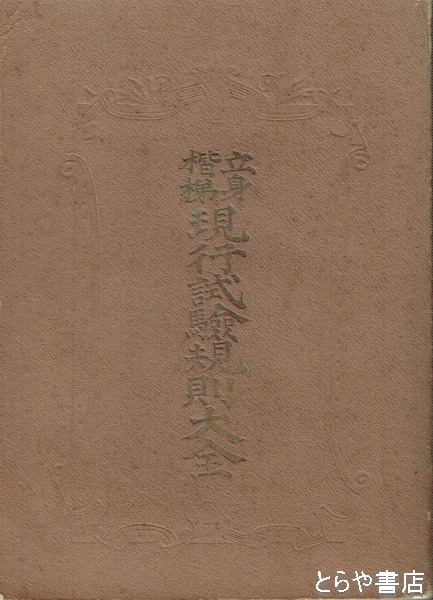 立身
楷梯
現行試驗規則大全
とらや書店